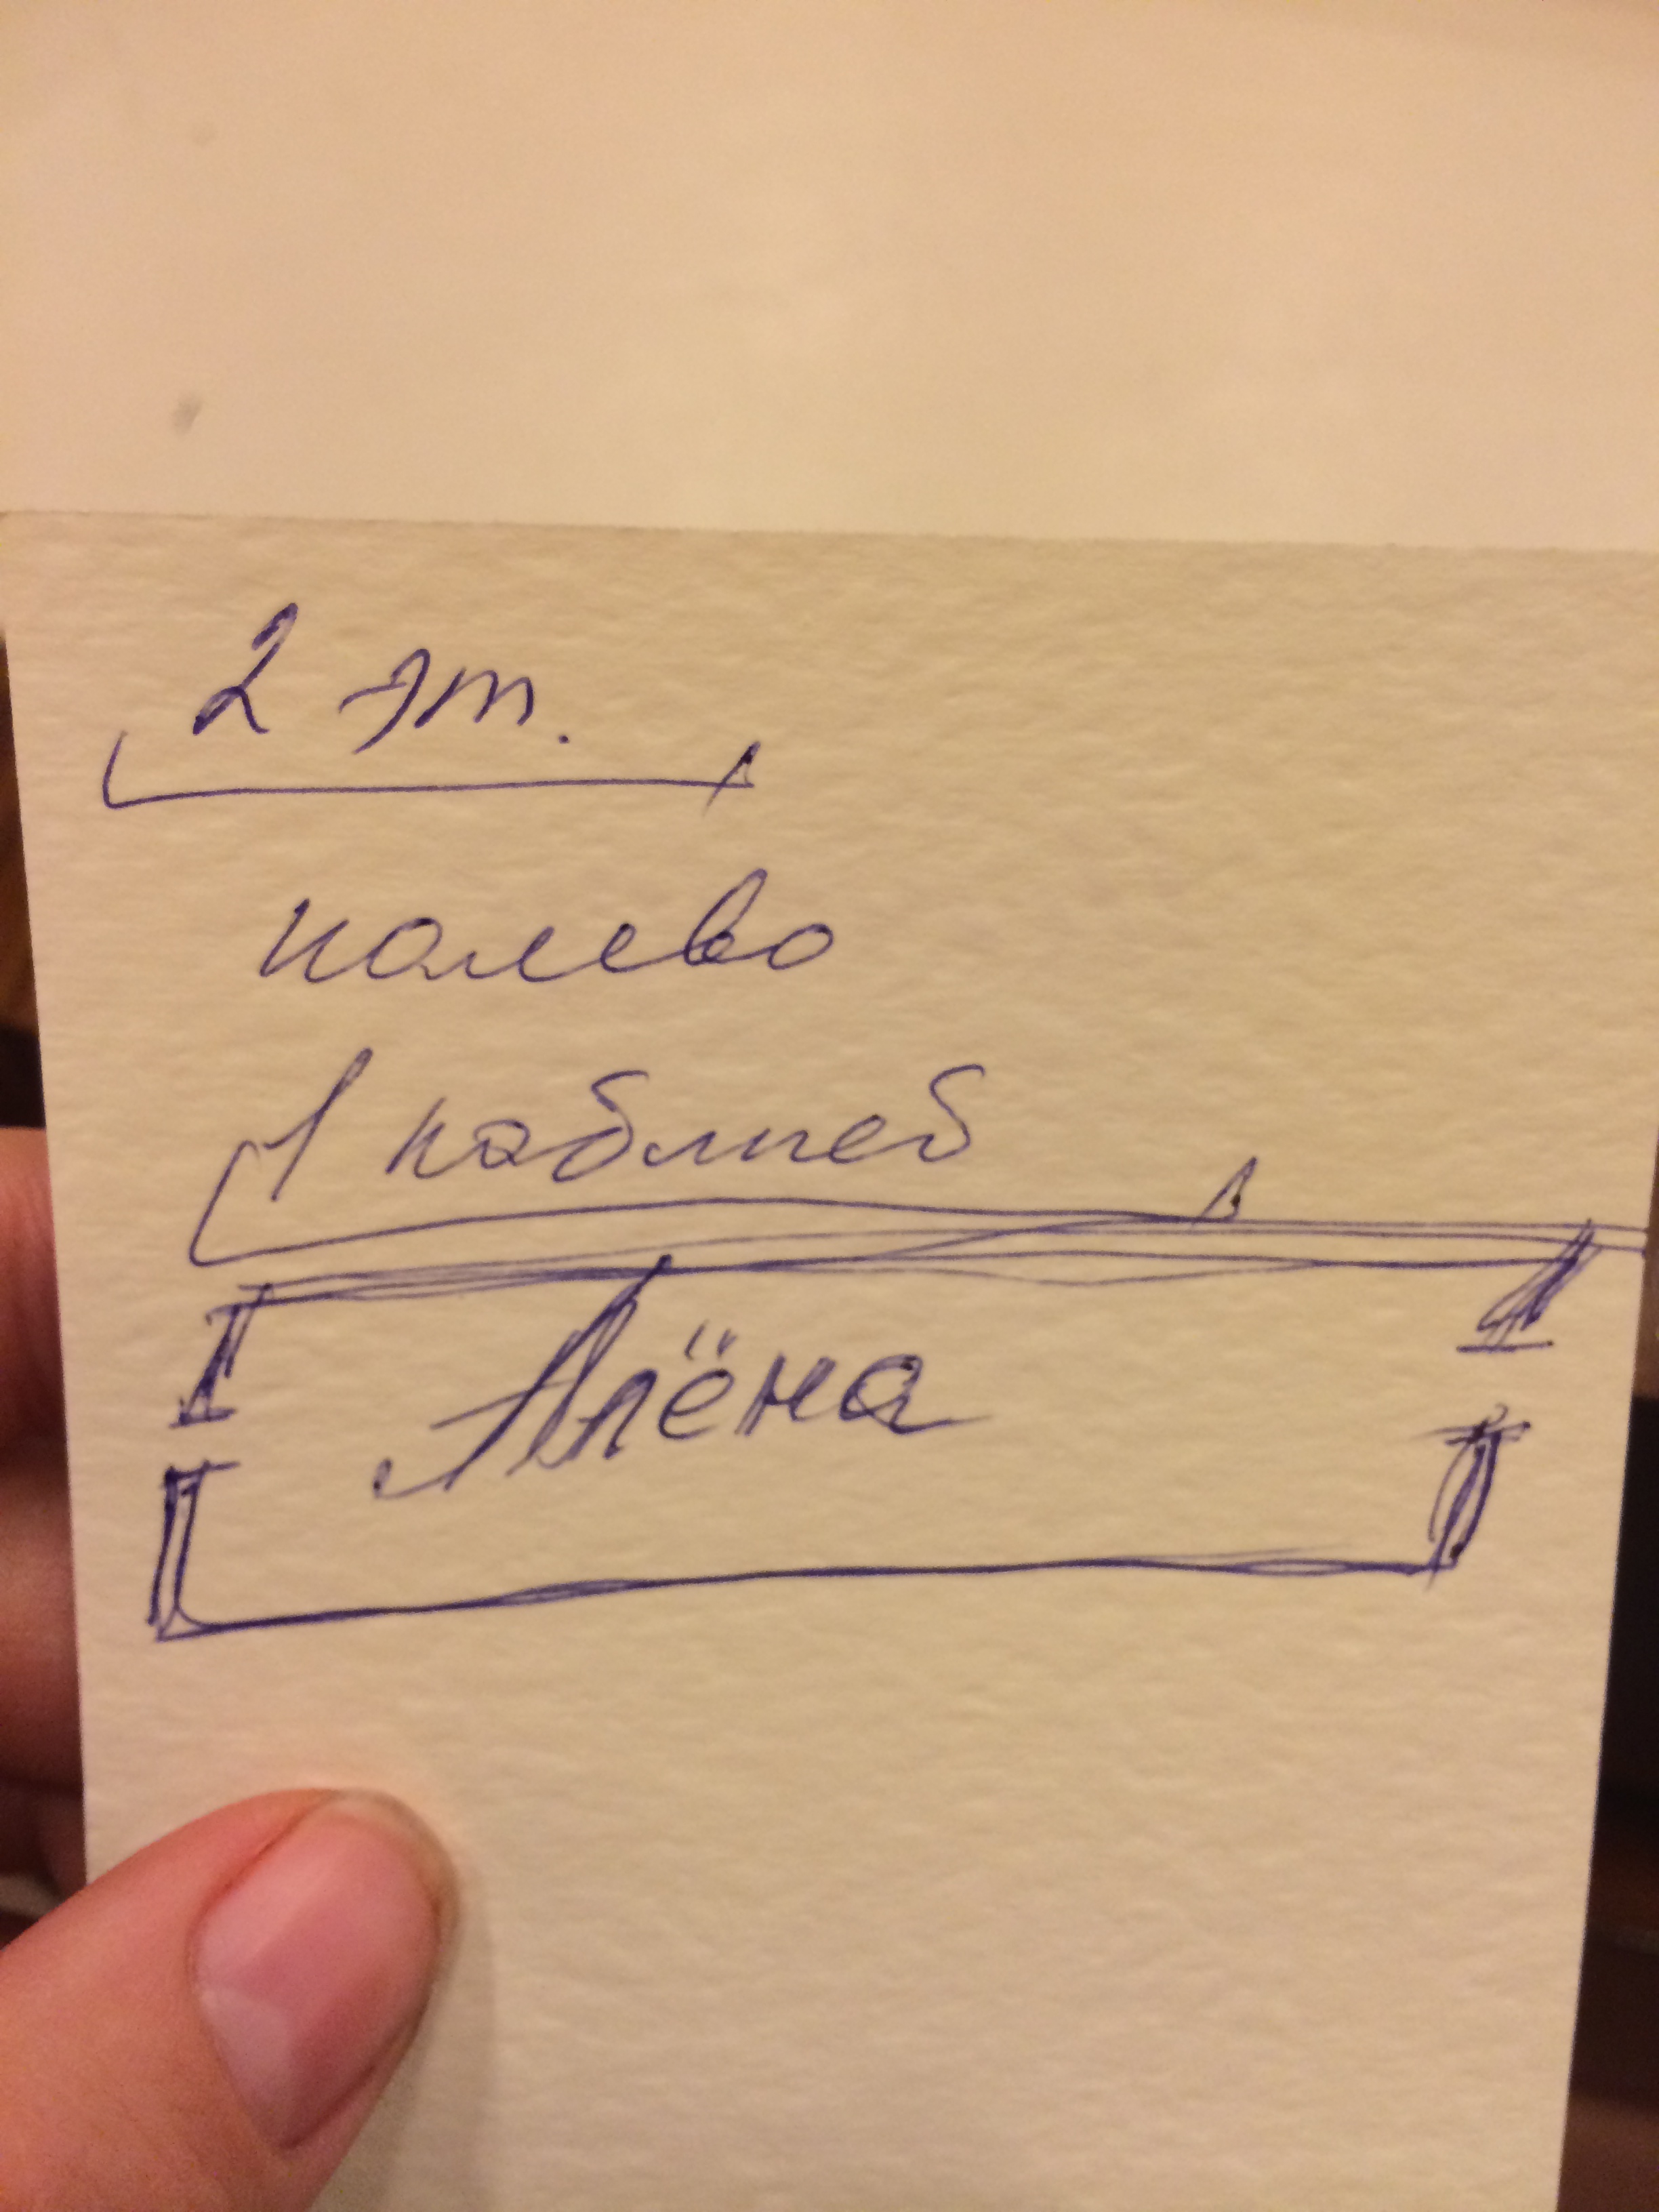 2 эт.
налево
1 кабинет
Алёна